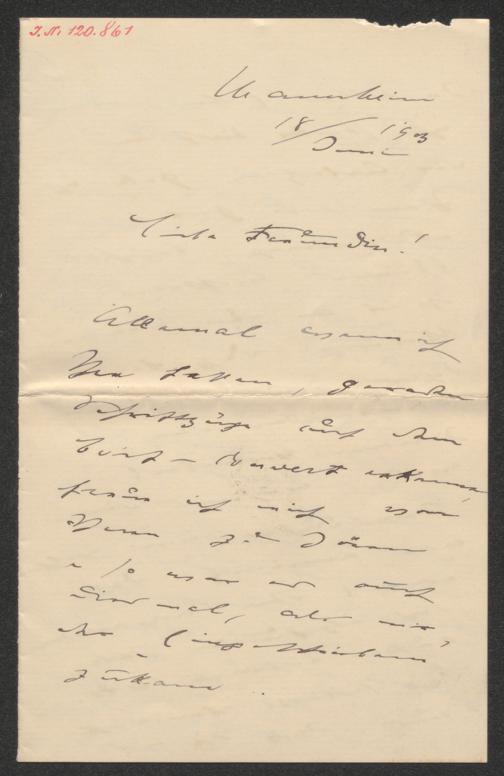 J.N. 120.861
Mannheim
18/ Juni 1903
Liebe Freundin!
Allemal wenn ich
Ihre lieben, geraden
Schriftzüge auf dem
Brief-Couvert erkenne,
freue ich mich von
Ihnen zu hören
u. so war es auch
diesmal, als mir
der Brief
zukam